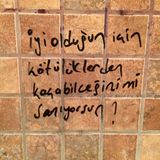 iyi olduğun için
kötülüklerden
kaçabileceğini mi
sanıyorsun ?